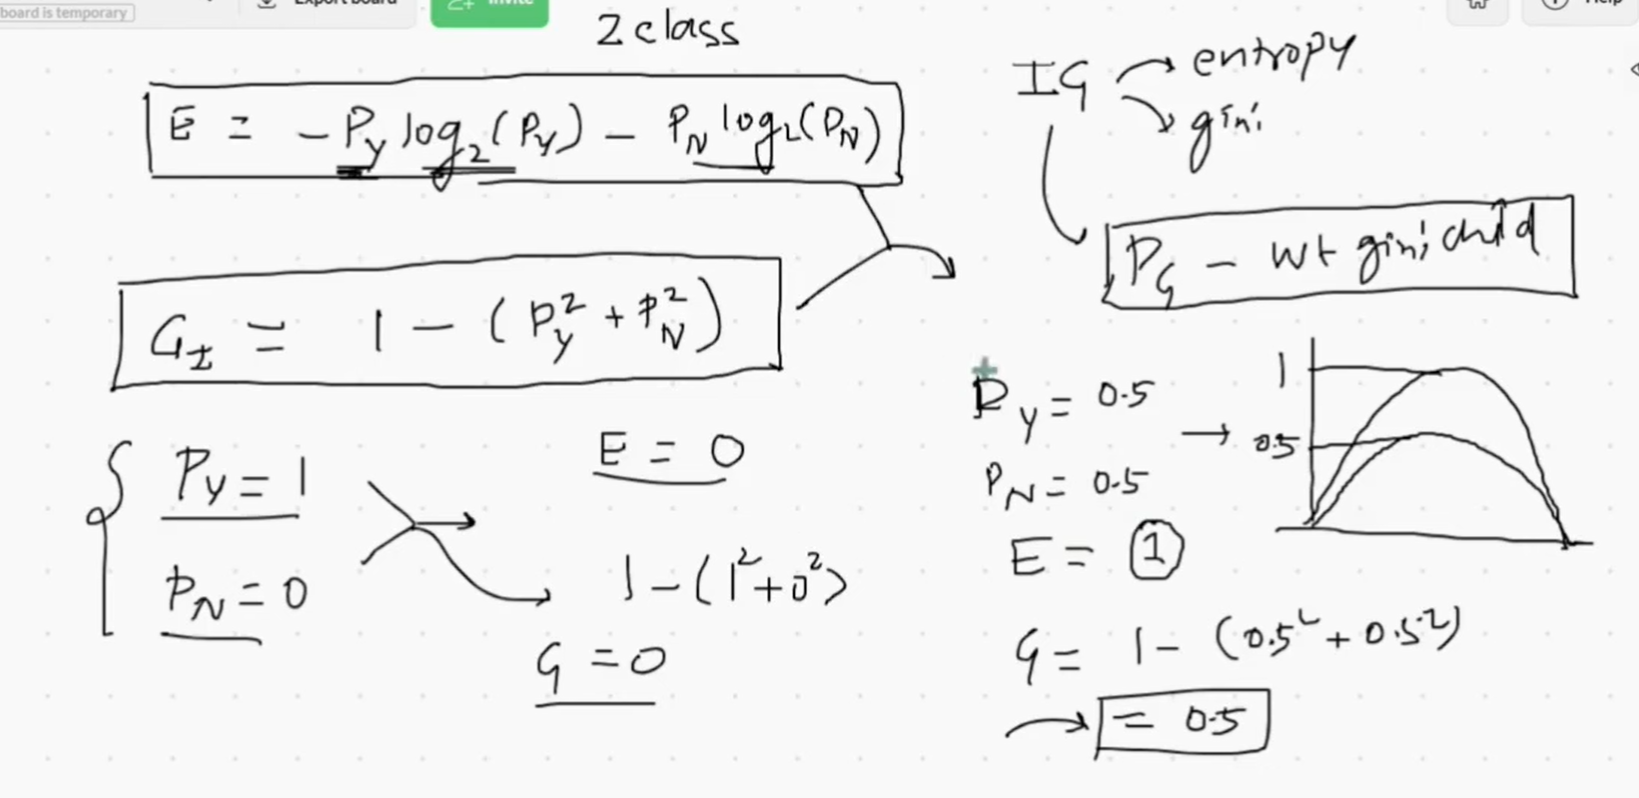 board is temporary
Export board
Invite
Help
2 class
E = - P_Y log_2 (P_Y) - P_N log_2 (P_N)
G_I = 1 - (P_Y^2 + P_N^2)
P_Y = 1
P_N = 0
E = 0
1 - (1^2 + 0^2)
G = 0
IG
entropy
gini
P_G - wt gini child
P_Y = 0.5
P_N = 0.5
E = 1
G = 1 - (0.5^2 + 0.5^2)
= 0.5
1
0.5